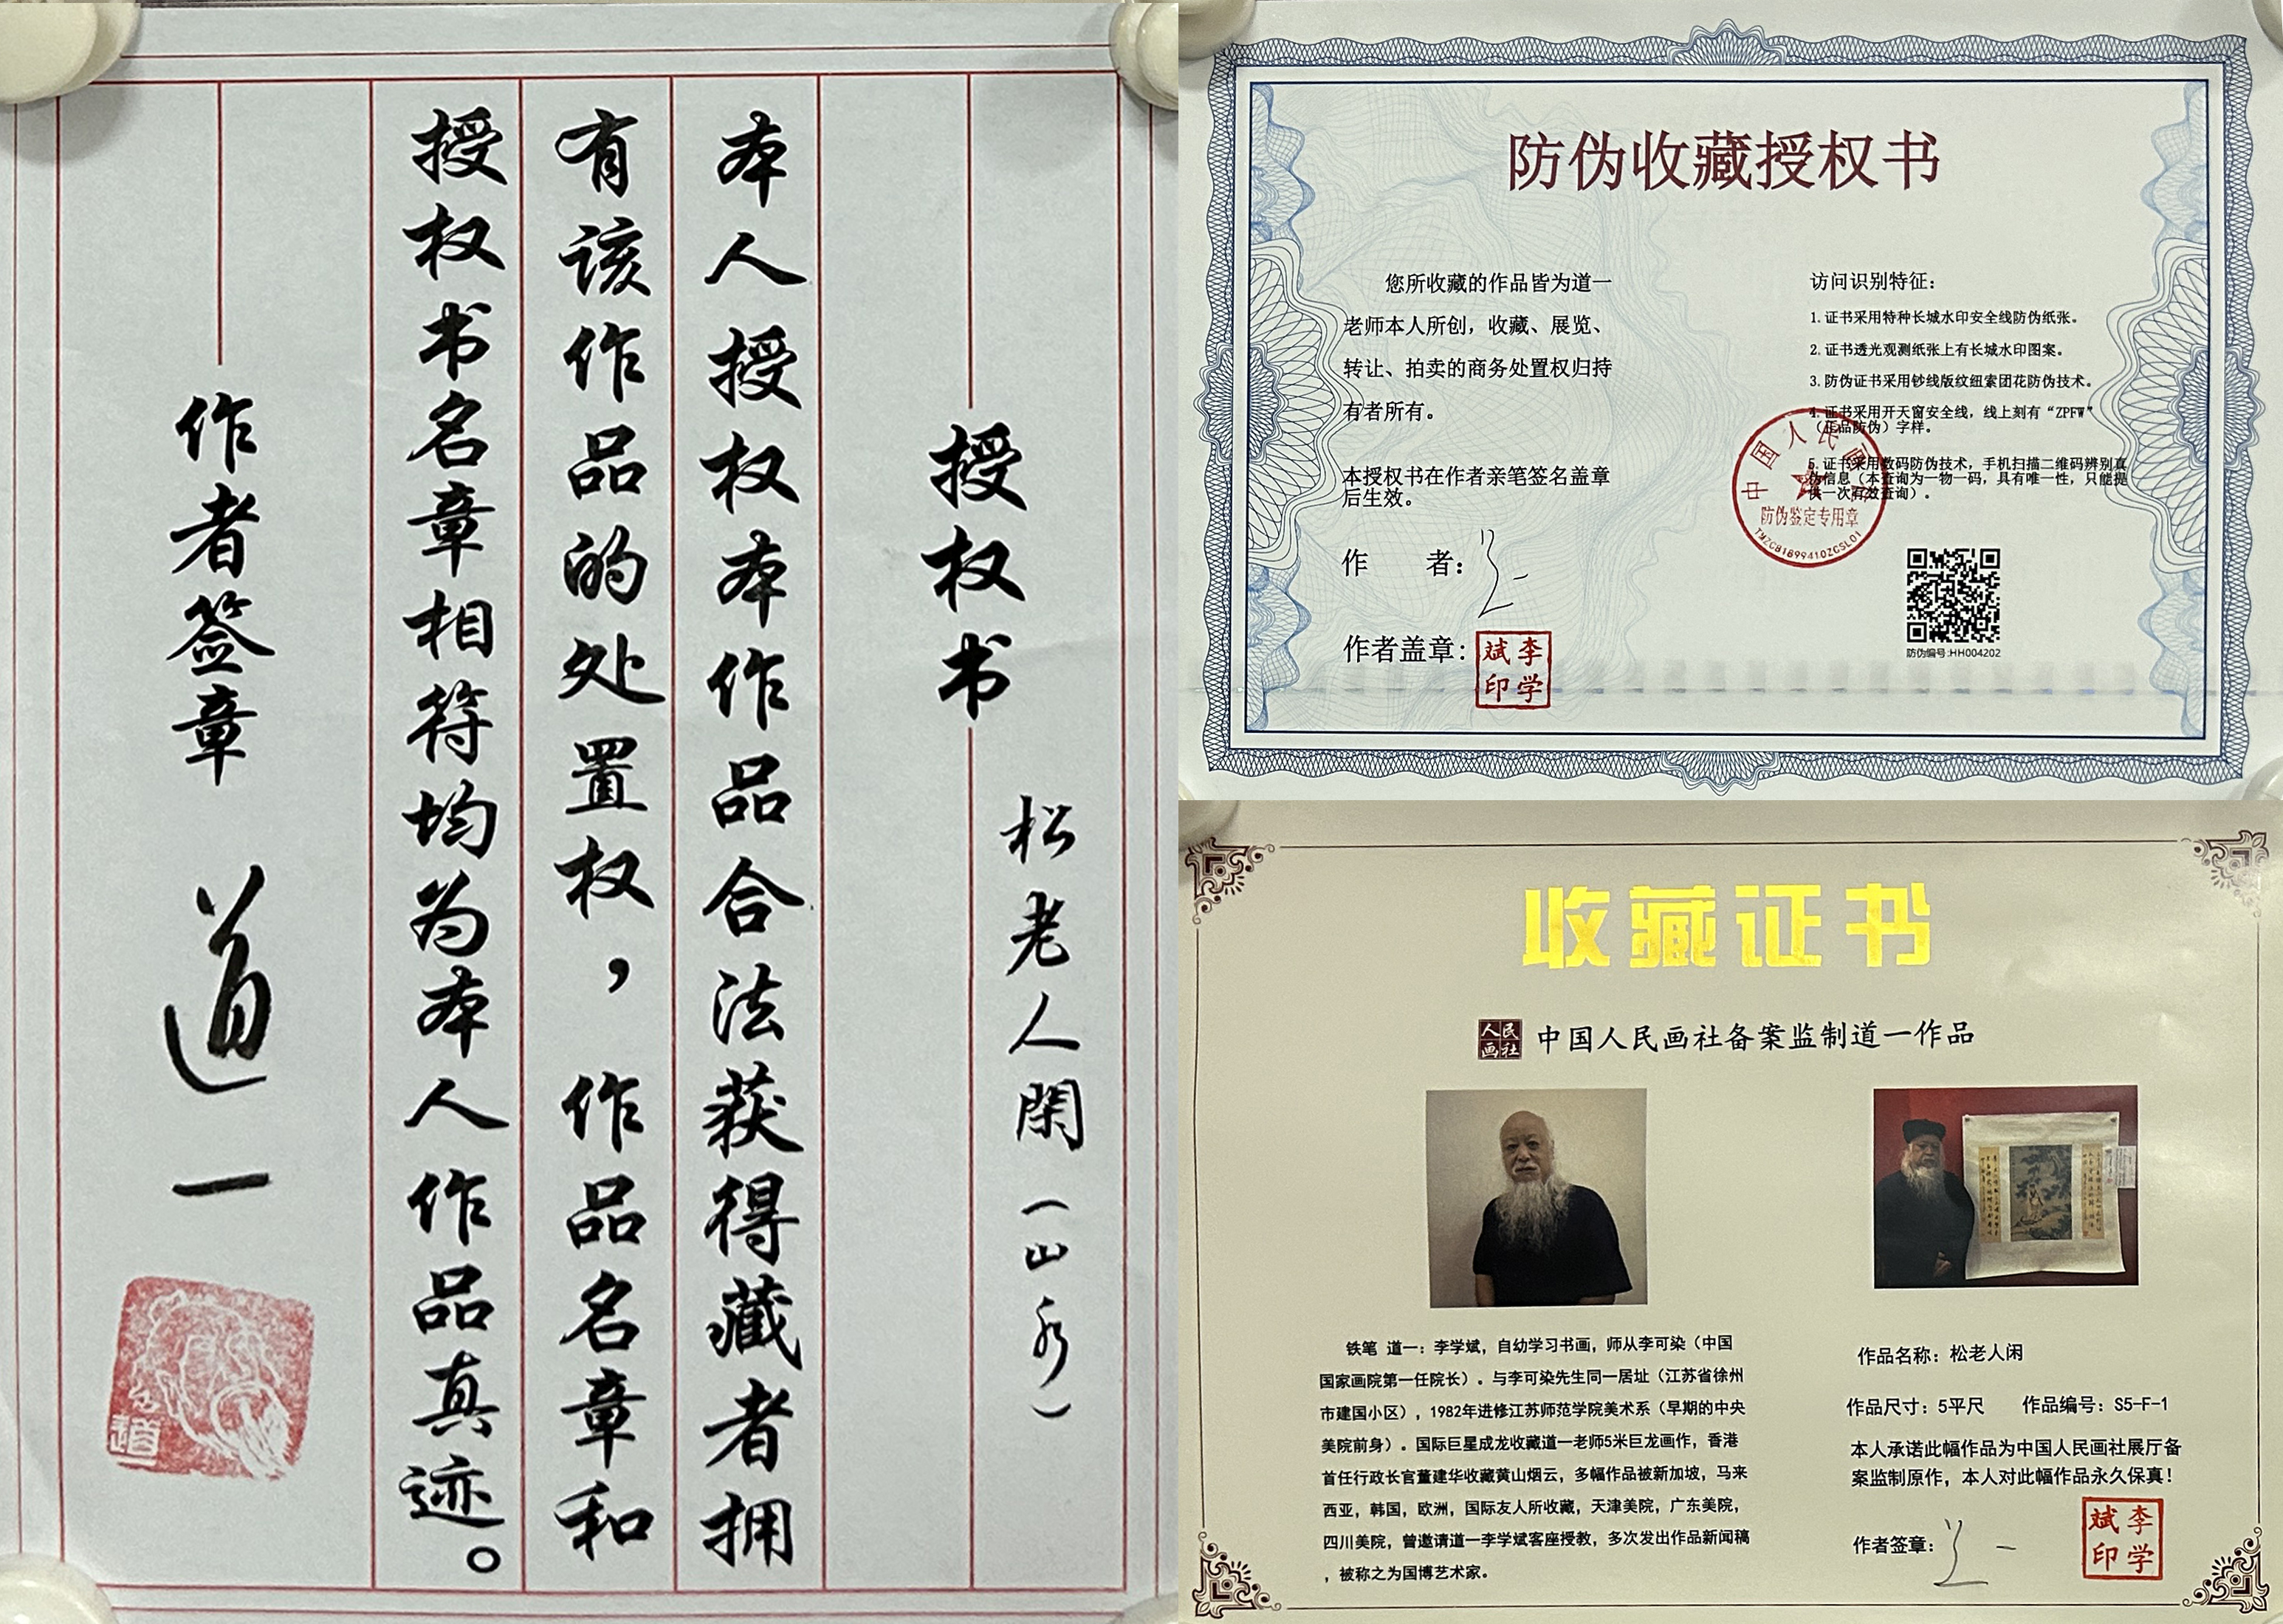 松老人闲（山水）
授权书
本人授权本作品合法获得藏者拥
有该作品的处置权，作品名章和
授权书名章相符均为本人作品真迹。
作者签章 道一
防伪收藏授权书
您所收藏的作品皆为道一
老师本人所创，收藏、展览、
转让、拍卖的商务处置权归持
有者所有。
本授权书在作者亲笔签名盖章
后生效。
作　者：道一
作者盖章：
李学斌印
访问识别特征：
1.证书采用特种长城水印安全线防伪纸张。
2.证书透光观测纸张上有长城水印图案。
3.防伪证书采用钞线版纹纽索团花防伪技术。
4.证书采用开天窗安全线，线上刻有“ZPFW”
（正品防伪）字样。
5.证书采用数码防伪技术，手机扫描二维码辨别真
伪信息（本查询为一物一码，具有唯一性，只能提
供一次有效查询）。
中国人民画
防伪鉴定专用章
防伪编号:HH004202
收藏证书
人民画社
中国人民画社备案监制道一作品
铁笔 道一：李学斌，自幼学习书画，师从李可染（中国
国家画院第一任院长）。与李可染先生同一居址（江苏省徐州
市建国小区），1982年进修江苏师范学院美术系（早期的中央
美院前身）。国际巨星成龙收藏道一老师5米巨龙画作，香港
首任行政长官董建华收藏黄山烟云，多幅作品被新加坡，马来
西亚，韩国，欧洲，国际友人所收藏，天津美院，广东美院，
四川美院，曾邀请道一李学斌客座授教，多次发出作品新闻稿
，被称之为国博艺术家。
作品名称：松老人闲
作品尺寸：5平尺　作品编号：S5-F-1
本人承诺此幅作品为中国人民画社展厅备
案监制原作，本人对此幅作品永久保真！
作者签章：道一
李学斌印